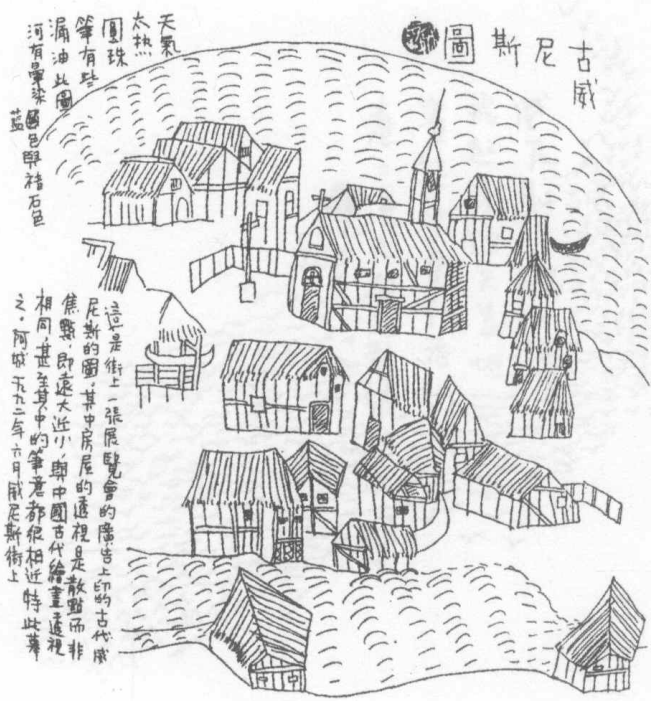 古威尼斯圖
天氣
太热
圓珠
筆有些
漏油此圖
河有暈染藍色與褚石色
這是街上一張展覽會的廣告上印的古代威
尼斯的圖,其中房屋的透視是散點而非
焦點,即遠大近小,與中國古代繪畫透視
相同,甚至其中的筆意都很相近特此摹
之。阿城一九九二年六月威尼斯街上